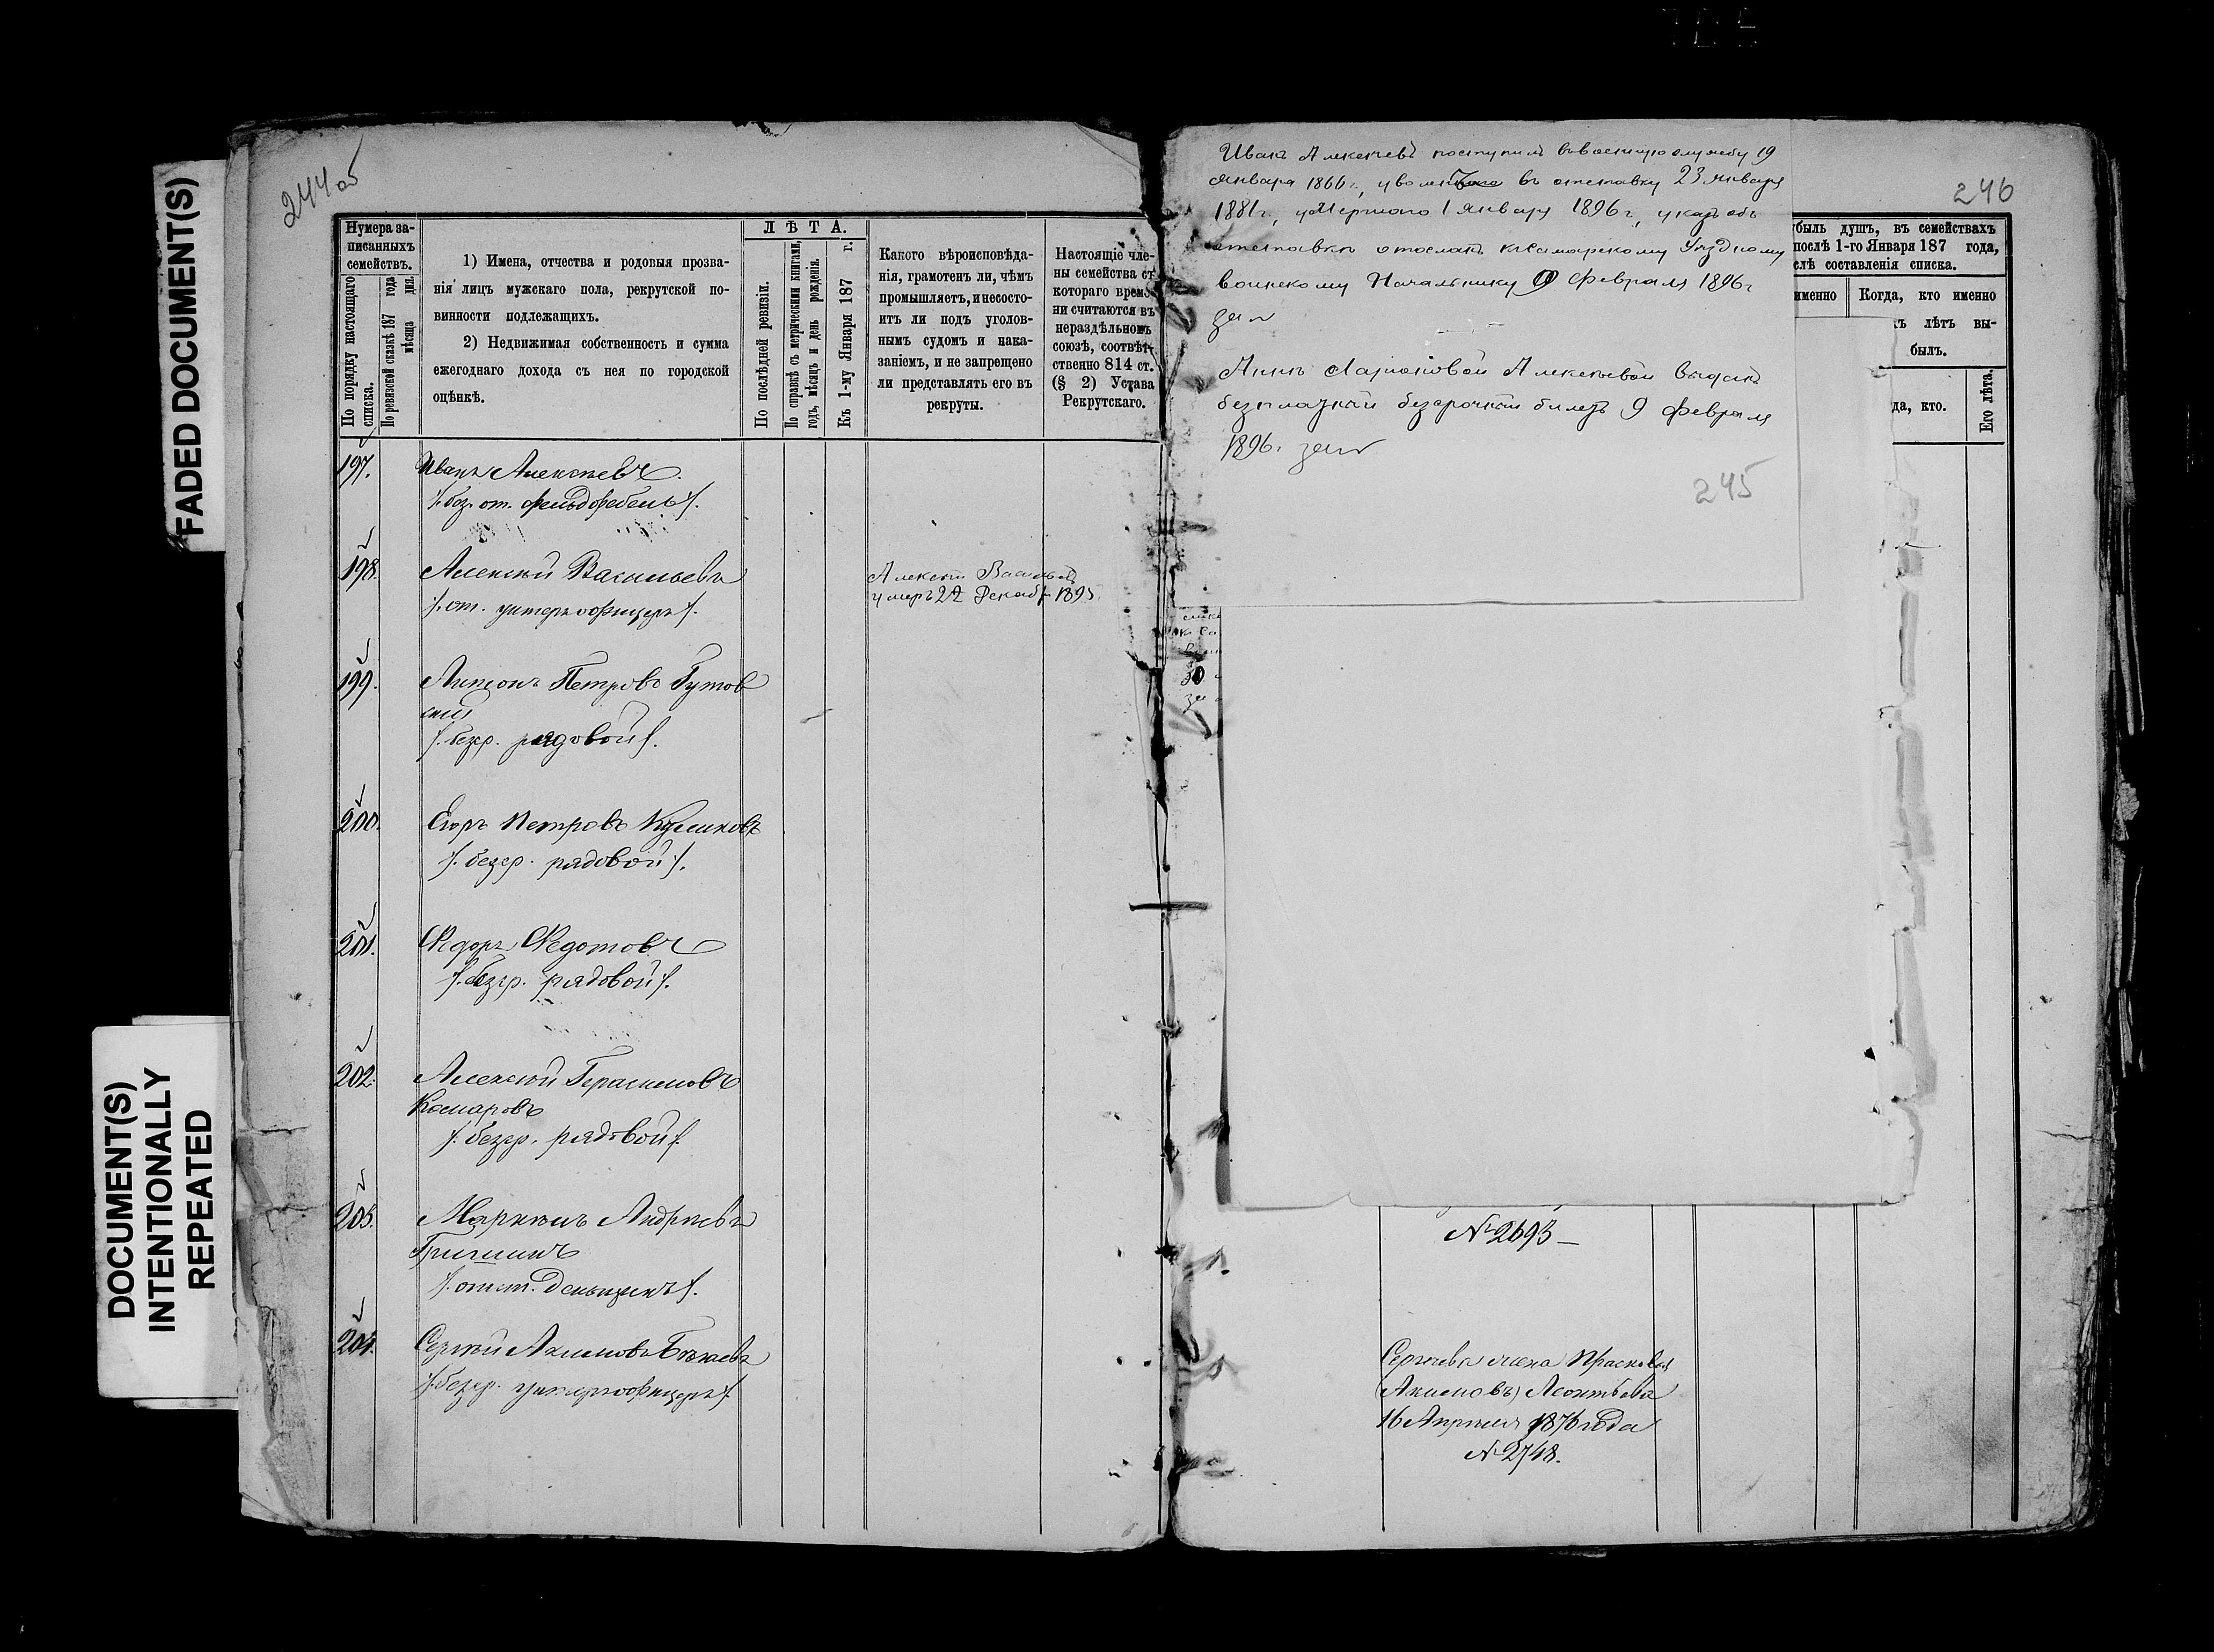 FADED DOCUMENT(S)
DOCUMENT(S)
INTENTIONALLY
REPEATED
244 об
Нумера за-
писанныхъ
семействъ.
По порядку настоящаго
списка.
По ревизской сказкѣ 187 года
мѣсяца дня.
1) Имена, отчества и родовыя прозва-
нія лицъ мужскаго пола, рекрутской по-
винности подлежащихъ.
2) Недвижимая собственность и сумма
ежегоднаго дохода съ нея по городской
оцѣнкѣ.
ЛѢТА.
По послѣдней ревизіи.
По справкѣ съ метрическими книгами,
годъ, мѣсяцъ и день рожденія.
Къ 1-му Января 187 г.
Какого вѣроисповѣда-
нія, грамотенъ ли, чѣмъ
промышляетъ, и несосто-
итъ ли подъ уголов-
нымъ судомъ и нака-
заніемъ, и не запрещено
ли представлять его въ
рекруты.
Настоящіе чле-
ны семейства съ
котораго време-
ни считаются въ
нераздѣльномъ
союзѣ, соотвѣт-
ственно 814 ст.
(§ 2) Устава
Рекрутскаго.
197.
Иванъ Алексѣевъ.
/. от. фельдфебель /.
198
Алексѣй Васильевъ
/. от. унтеръ офицеръ /.
Алексѣй Васильевъ
умеръ 22 Декабр 1895
199.
Антонъ Петровъ Гутов
скій
/. безср. рядовой /.
200.
Егоръ Петровъ Куликовъ
/. безср. рядовой /.
201.
Ѳедоръ Ѳедотовъ
/. безср. рядовой /.
202.
Алексѣй Герасимовъ
Комаровъ
/. безср. рядовой /.
203.
Андреевъ
Гришинъ
/. отст. деньщикъ /.
204.
Сергѣй Акимовъ
/. безср. унтеръ офицеръ /.
Иванъ Алексѣевъ поступилъ въ военную службу 19
Января 1866 г., уволенъ въ отставку 23 Января
1881 г., умершаго 1 Января 1896 г., указъ объ
отставкѣ отосланъ къ Самарскому Уѣздному
воинскому Начальнику 9 Февраля 1896 г
Аннѣ Ларіоновой Алексѣевой выданъ
безплатный безсрочный билетъ 9 Февраля
1896.
245
246
ыбыль душъ, въ семействахъ
послѣ 1-го Января 187 года,
слѣ составленія списка.
именно
Когда, кто именно
ъ лѣтъ вы-
былъ.
да, кто.
Его лѣта.
№ 2693 —
Сергѣева жена Прасковья
(Акимовъ) Леонтьева
16 Апрѣля 1876 года
№ 2748.